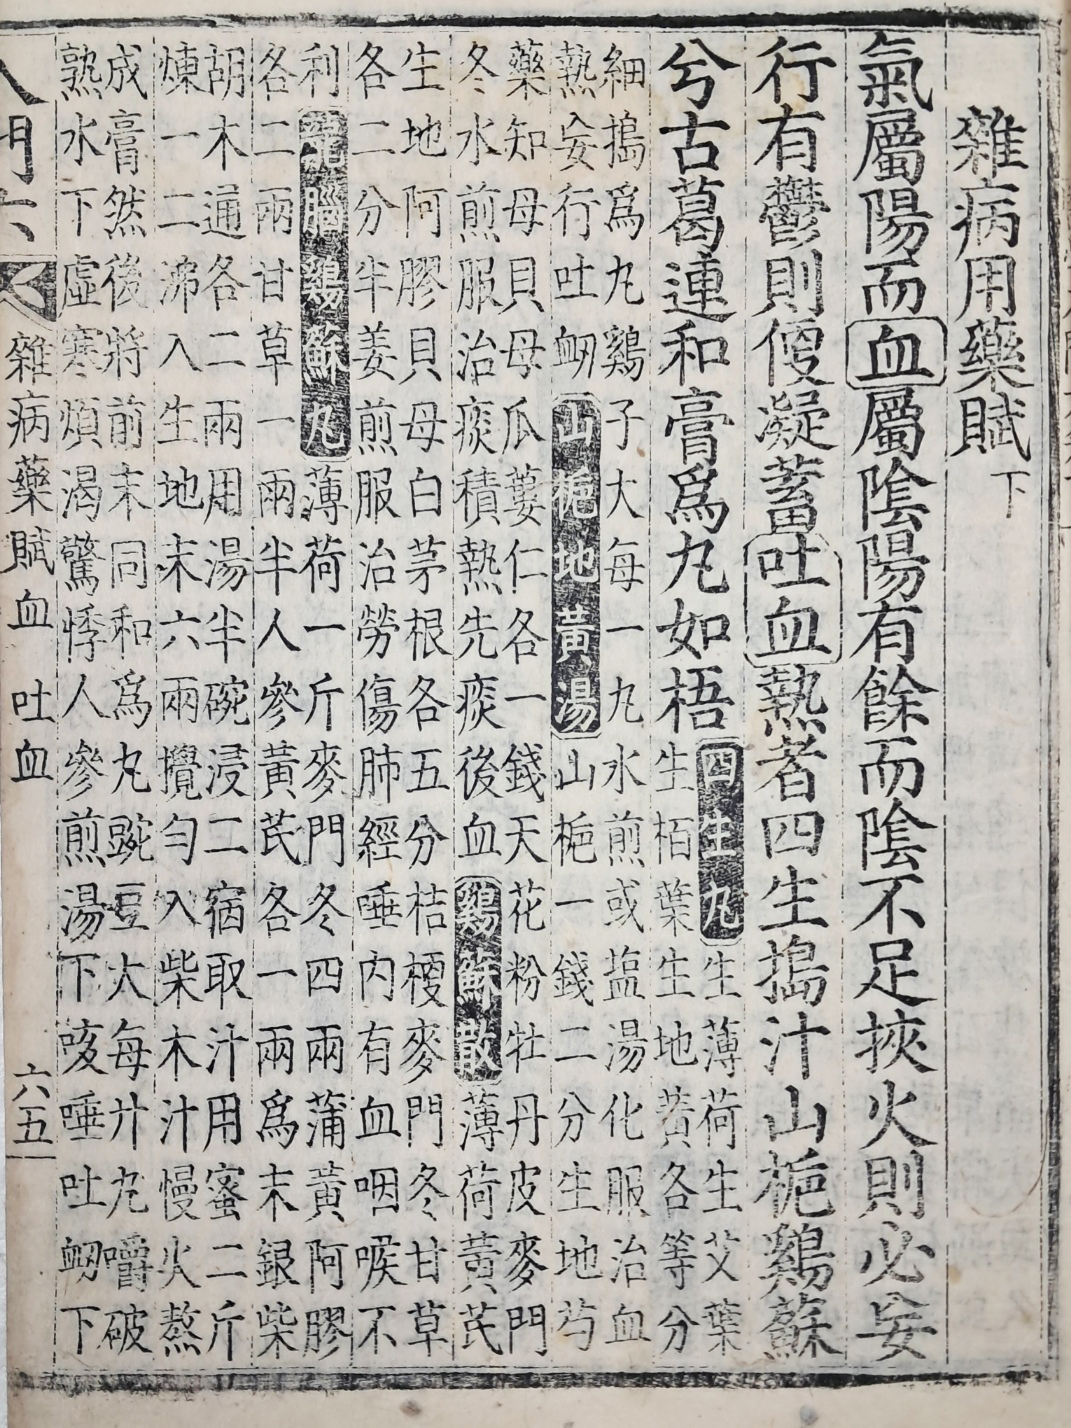 雜病用藥賦下
氣屬陽而血屬陰陽有餘而陰不足挾火則必妄
行有鬱則便凝蓄吐血熱者四生搗汁山梔鷄蘇
兮古葛連和膏爲丸如梧
四生丸生薄荷生艾葉
生栢葉生地黃各等分
細搗爲丸鷄子大每一丸水煎或盐湯化服治血
熱妄行吐衂山梔地黃湯山梔一錢二分生地芍
藥知母貝母瓜蔞仁各一錢天花粉牡丹皮麥門
冬水煎服治痰積熱先痰後血鷄蘇散薄荷黃芪
生地阿膠貝母白茅根各五分桔梗麥門冬甘草
各二分半姜煎服治勞傷肺經唾內有血咽喉不
利龍腦鷄蘇丸薄荷一斤麥門冬四兩蒲黃阿膠
各二兩甘草一兩半人參黃芪各一兩爲末銀柴
胡木通各二兩用湯半碗浸二宿取汁用蜜二斤
煉一二沸入生地末六兩攪勻入柴木汁慢火熬
成膏然後將前末同和爲丸豌豆大每廾丸嚼破
熟水下虛寒煩渴驚悸人參煎湯下咳唾吐衂下
入門六 雜病藥賦血 吐血 六五